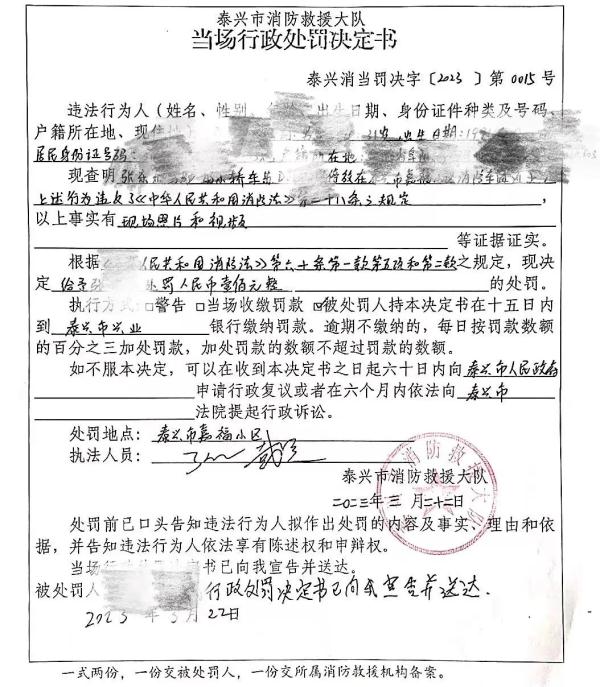 泰兴市消防救援大队
当场行政处罚决定书
泰兴消当罚决字〔2023〕第0015号
违法行为人（姓名、性别、年龄、出生日期、身份证件种类及号码、
户籍所在地、现住 出生日期:19
居民身份证号码: 户籍所在地:
现查明 轿车 停放在 泰兴市嘉福小区消防车通道上
上述行为违反了《中华人民共和国消防法》第二十八条之规定，
以上事实有 现场照片和视频
等证据证实。
根据《 人民共和国消防法》第六十条第一款第五项和第二款之规定，现决
定 给予 罚人民币壹佰元整
执行方式:□警告 □当场收缴罚款 ☑被处罚人持本决定书在十五日内
到 泰兴市兴业 银行缴纳罚款。逾期不缴纳的，每日按罚款数额
的百分之三加处罚款，加处罚款的数额不超过罚款的数额。
如不服本决定，可以在收到本决定书之日起六十日内向 泰兴市人民政府
申请行政复议或者在六个月内依法向 泰兴市
法院提起行政诉讼。
处罚地点: 泰兴市嘉福小区
执法人员:
泰兴市消防救援大队
二〇二三年三月二十二日
处罚前已口头告知违法行为人拟作出处罚的内容及事实、理由和依
据，并告知违法行为人依法享有陈述权和申辩权。
当场 定书已向我宣告并送达。
被处罚人 行政处罚决定书已向我宣告并送达.
2023年3月22日
一式两份，一份交被处罚人，一份交所属消防救援机构备案。